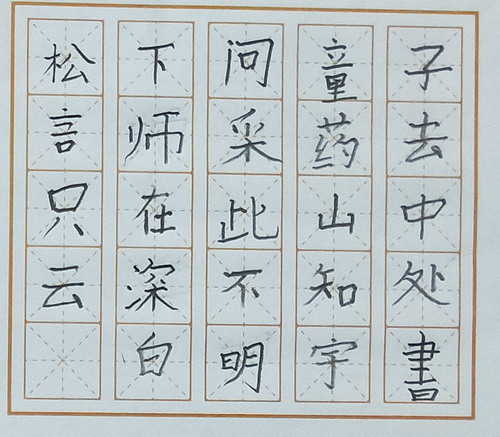 松下问童子
言师采药去
只在此山中
云深不知处
白明宇書